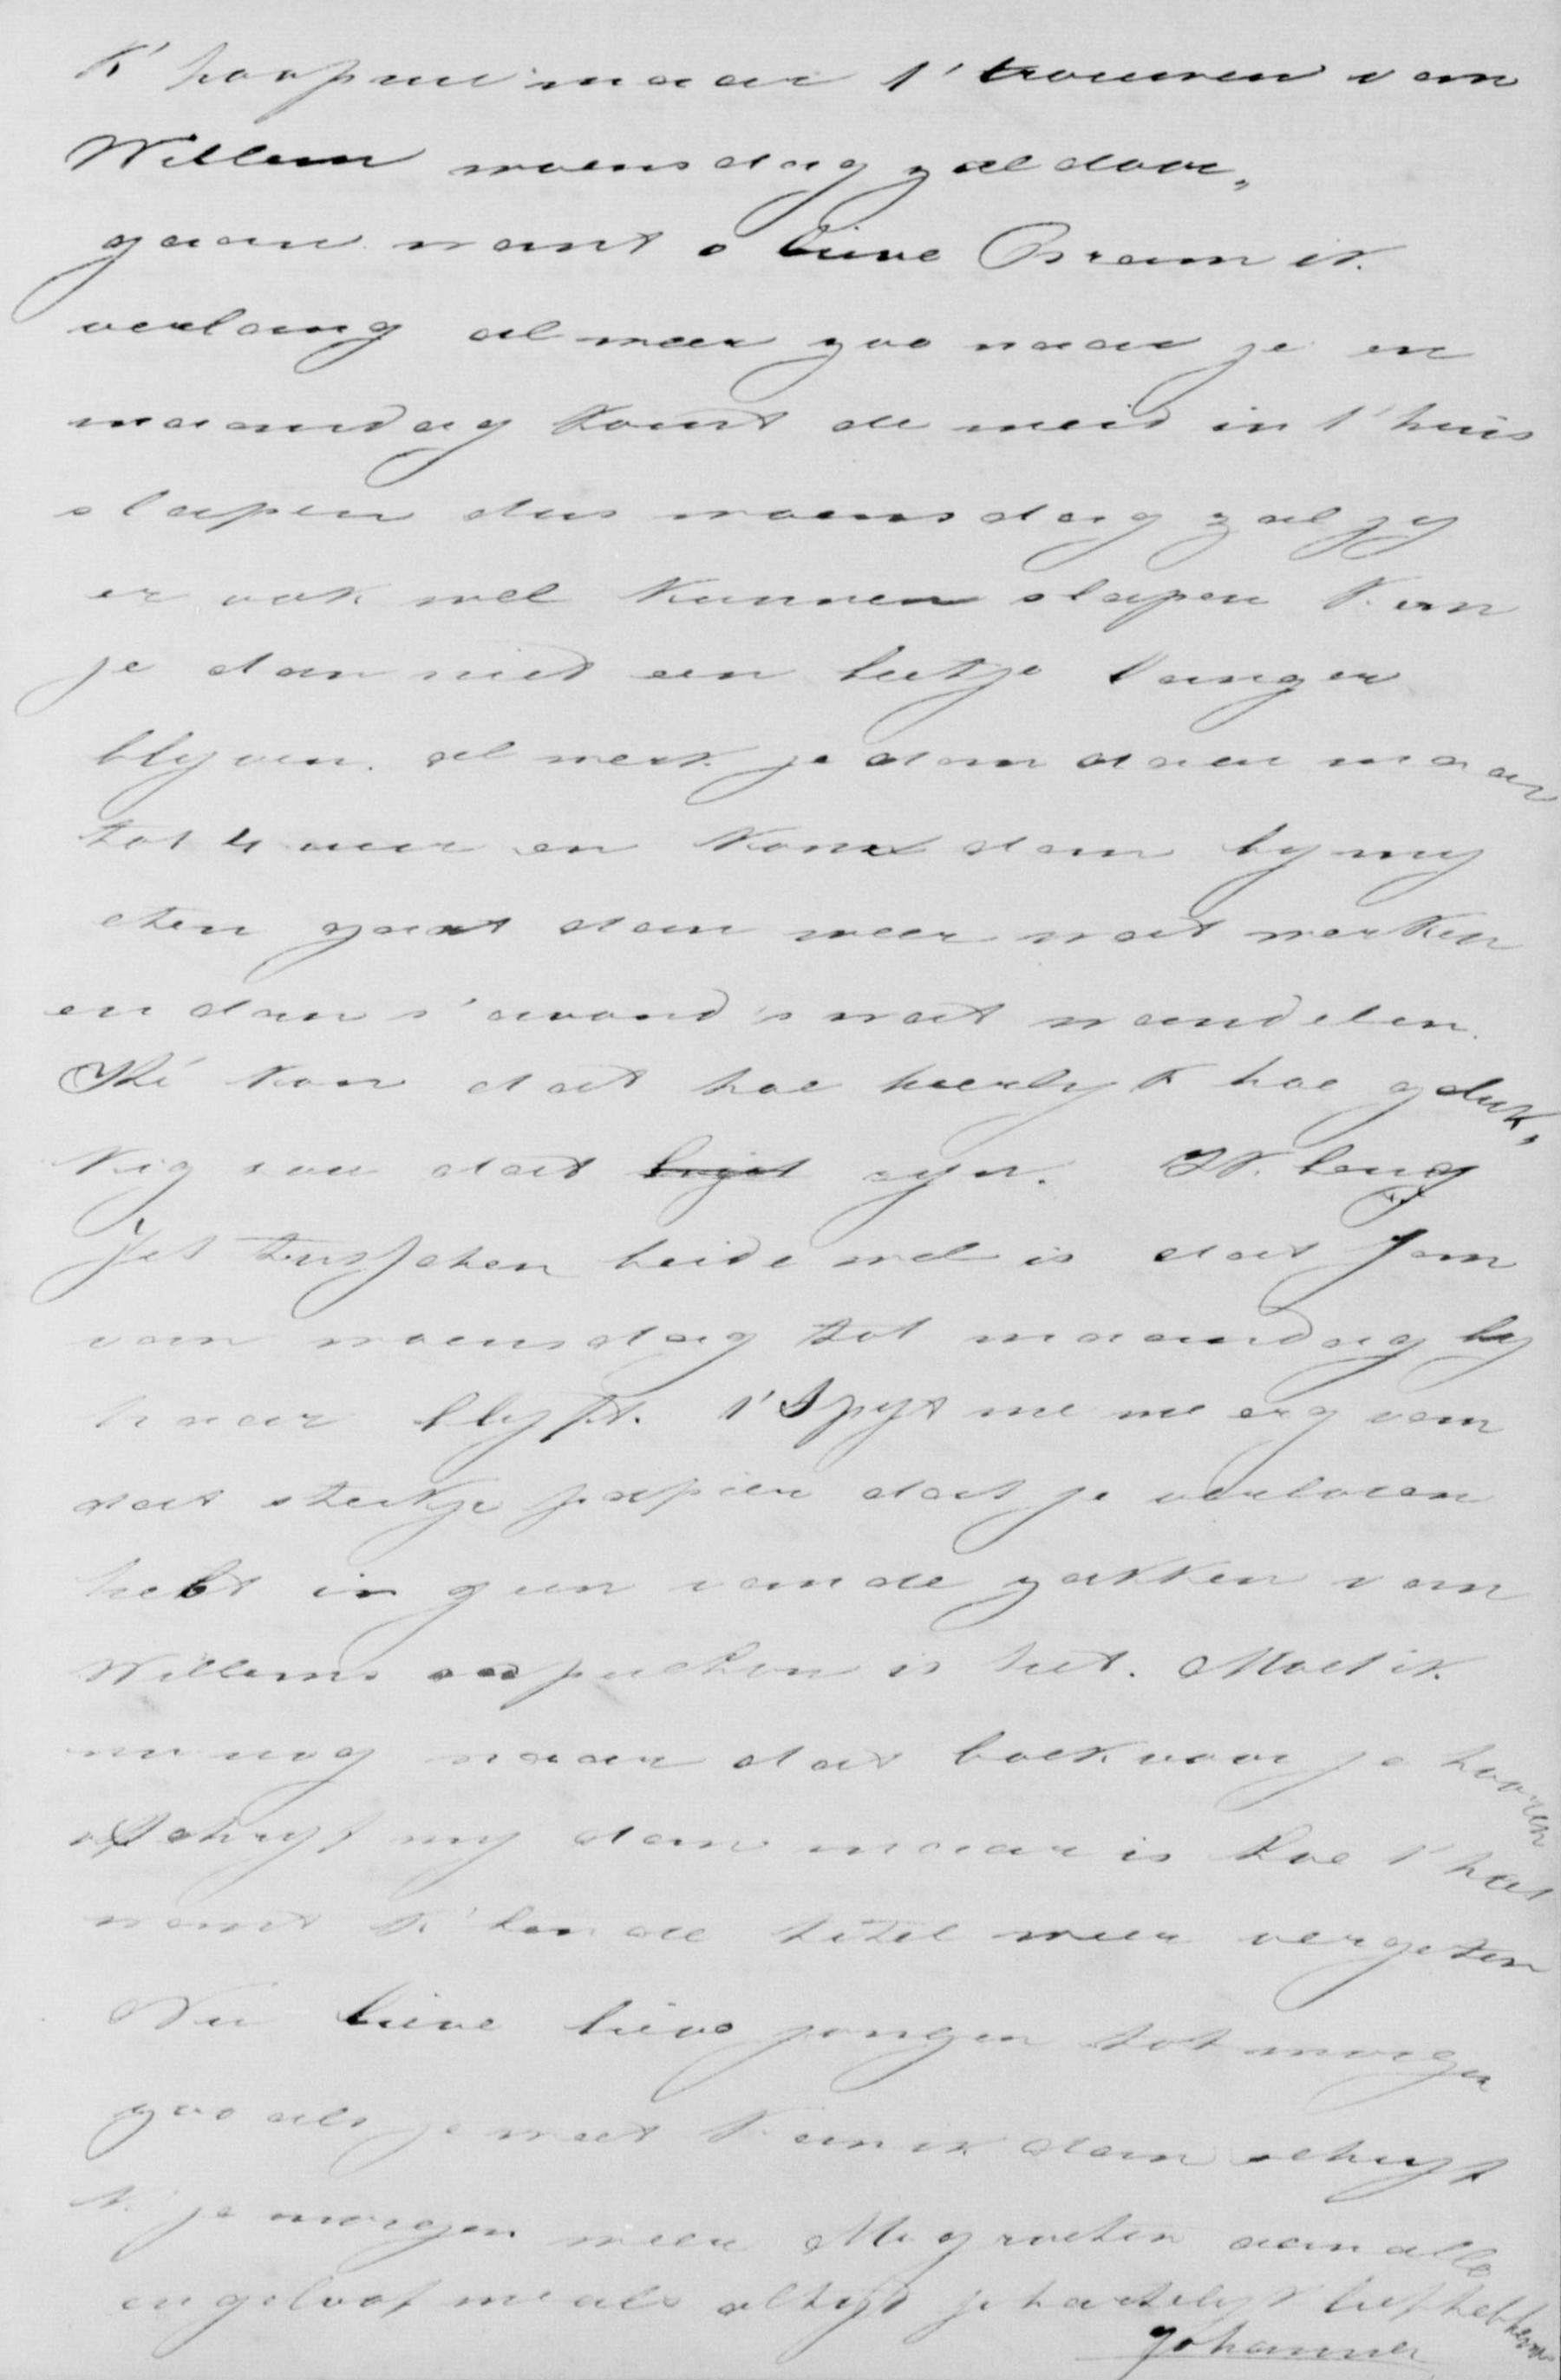 K' hoop nu maar t' trouwen van
Willem woensdag zal door„
gaan want o lieve Bram ik
verlang al meer zoo naar je en
maandag komt de meid in t' huis
slapen dus woensdag zal jy
er ook wel kunnen slapen kan
je dan niet een beetje langer
blyven. al werk je dan daar maar
tot 4 uur en komt dan by my
eten gaat dan weer wat werken
en dan s' avond's wat wandelen.
Hé kon dat hoe heerlyk hoe geluk„
kig sou dat zyn. Ik
Jet tusschen beide wel is dat Jan
van woensdag tot maandag by
haar blyft. t' Spyt me erg van
dat stukje papier dat je verloren
hebt in geen van de zakken van
Willems is het. Moet ik
nu nog naar dat boek voor je hooren
Schryf my dan maar is hoe t' heet
want K' ben de titel weer vergeten
Nu lieve lieve jongen tot morgen
zoo als je weet kan ik dan schryf
k' je morgen meer M. groeten aan alle
en geloof me als altyd je hartelyk liefhebbende
Johanna